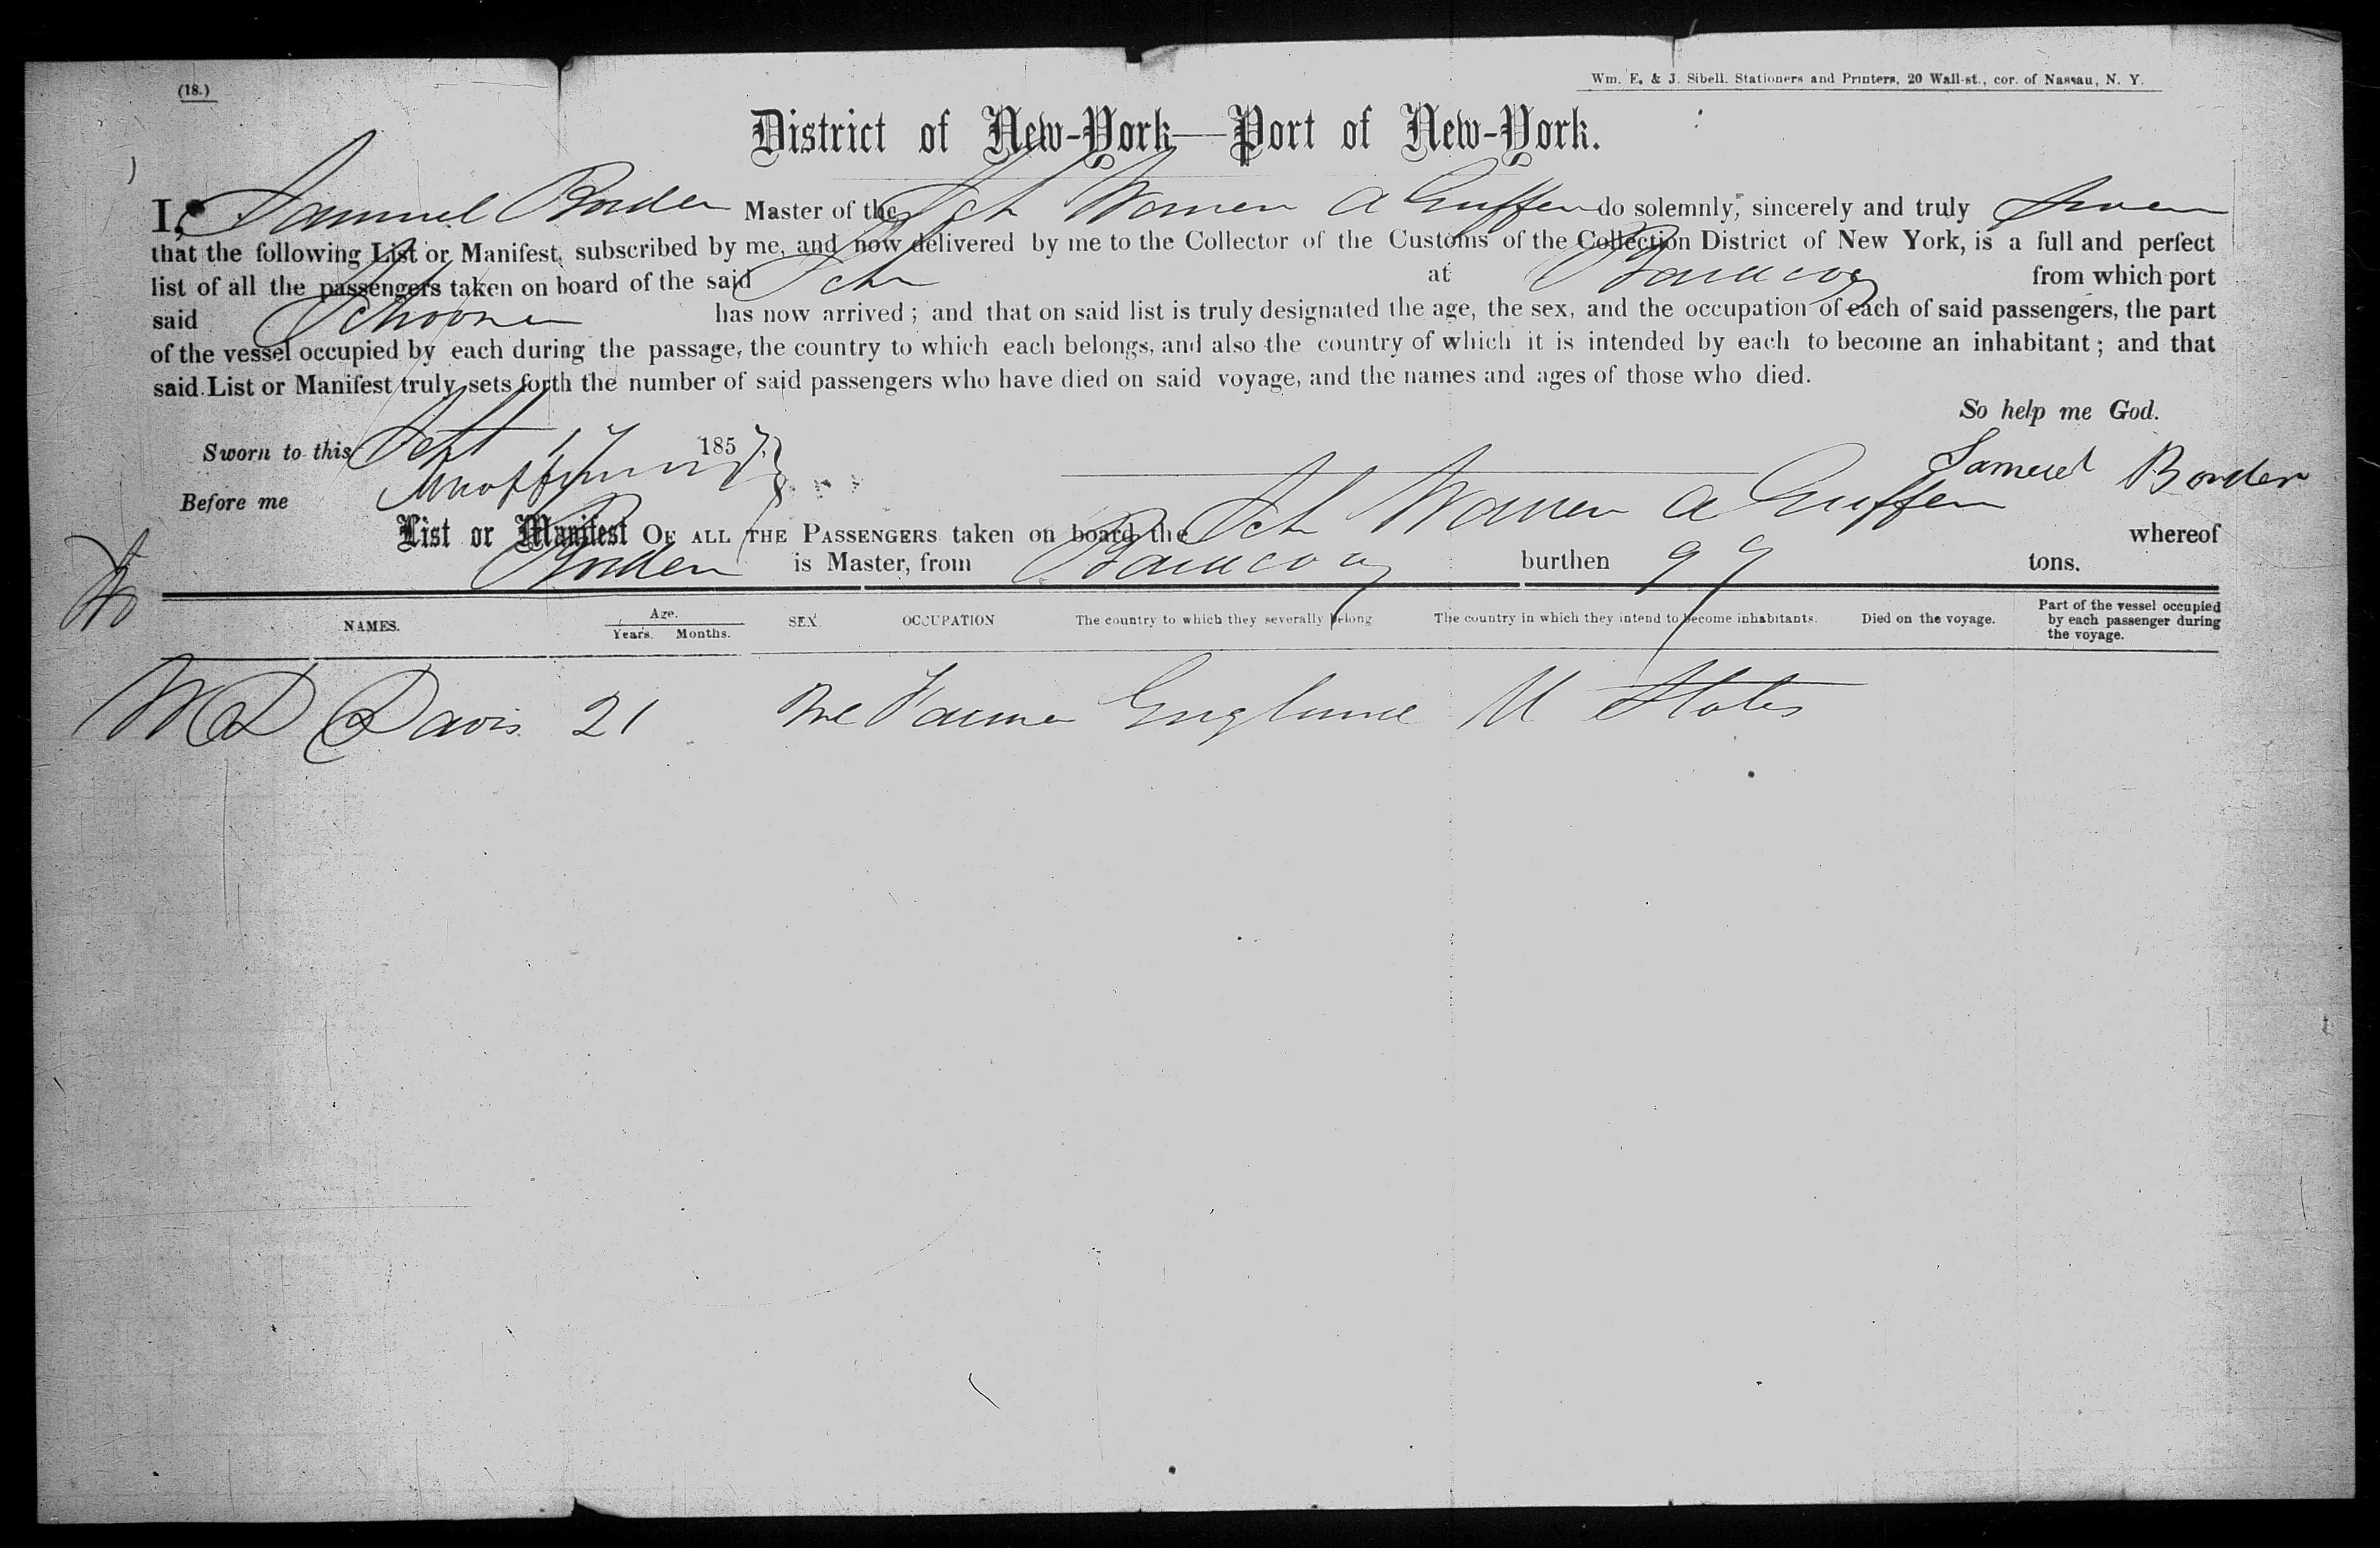 (18.)
Wm. E. & J. Sibell. Stationers and Printers, 20 Wall-st., cor. of Nassau, N. Y.
District of New-York—Port of New-York.
I, Samuel Borden Master of the Sch Warren A Griffen do solemnly, sincerely and truly Swear
that the following List or Manifest, subscribed by me, and now delivered by me to the Collector of the Customs of the Collection District of New York, is a full and perfect
list of all the passengers taken on board of the said Sch at Baracoa from which port
said Schooner has now arrived; and that on said list is truly designated the age, the sex, and the occupation of each of said passengers, the part
of the vessel occupied by each during the passage, the country to which each belongs, and also the country of which it is intended by each to become an inhabitant; and that
said List or Manifest truly sets forth the number of said passengers who have died on said voyage, and the names and ages of those who died.
So help me God.
Sworn to this Sept 17 1857
Samuel Borden
Before me
List or Manifest OF ALL THE PASSENGERS taken on board the Sch Warren A Griffen whereof
Borden is Master, from Baracoa burthen 99 tons.
NAMES. Age. Years. Months. SEX. OCCUPATION The country to which they severally belong The country in which they intend to become inhabitants. Died on the voyage. Part of the vessel occupied by each passenger during the voyage.
W D Davis 21 Me Farmer England U States